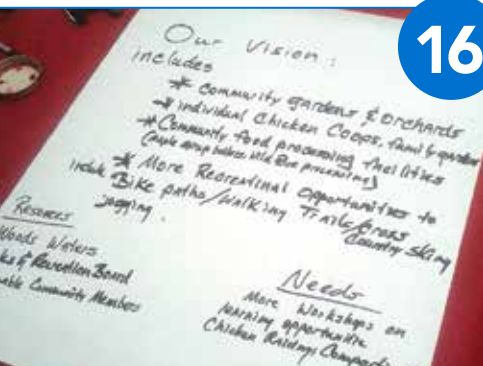 16
Our Vision:
includes
* Community gardens & Orchards
* individual Chicken Coops, family garden
* Community food processing facilities
(maple syrup
* More Recreational opportunities to
include Bike paths/Walking Trails/cross
Country Skiing
jogging.
Resources
Woods Waters
& Recreation Board
Community Members
Needs
More Workshops on
learning opportunities
Chicken Raising,